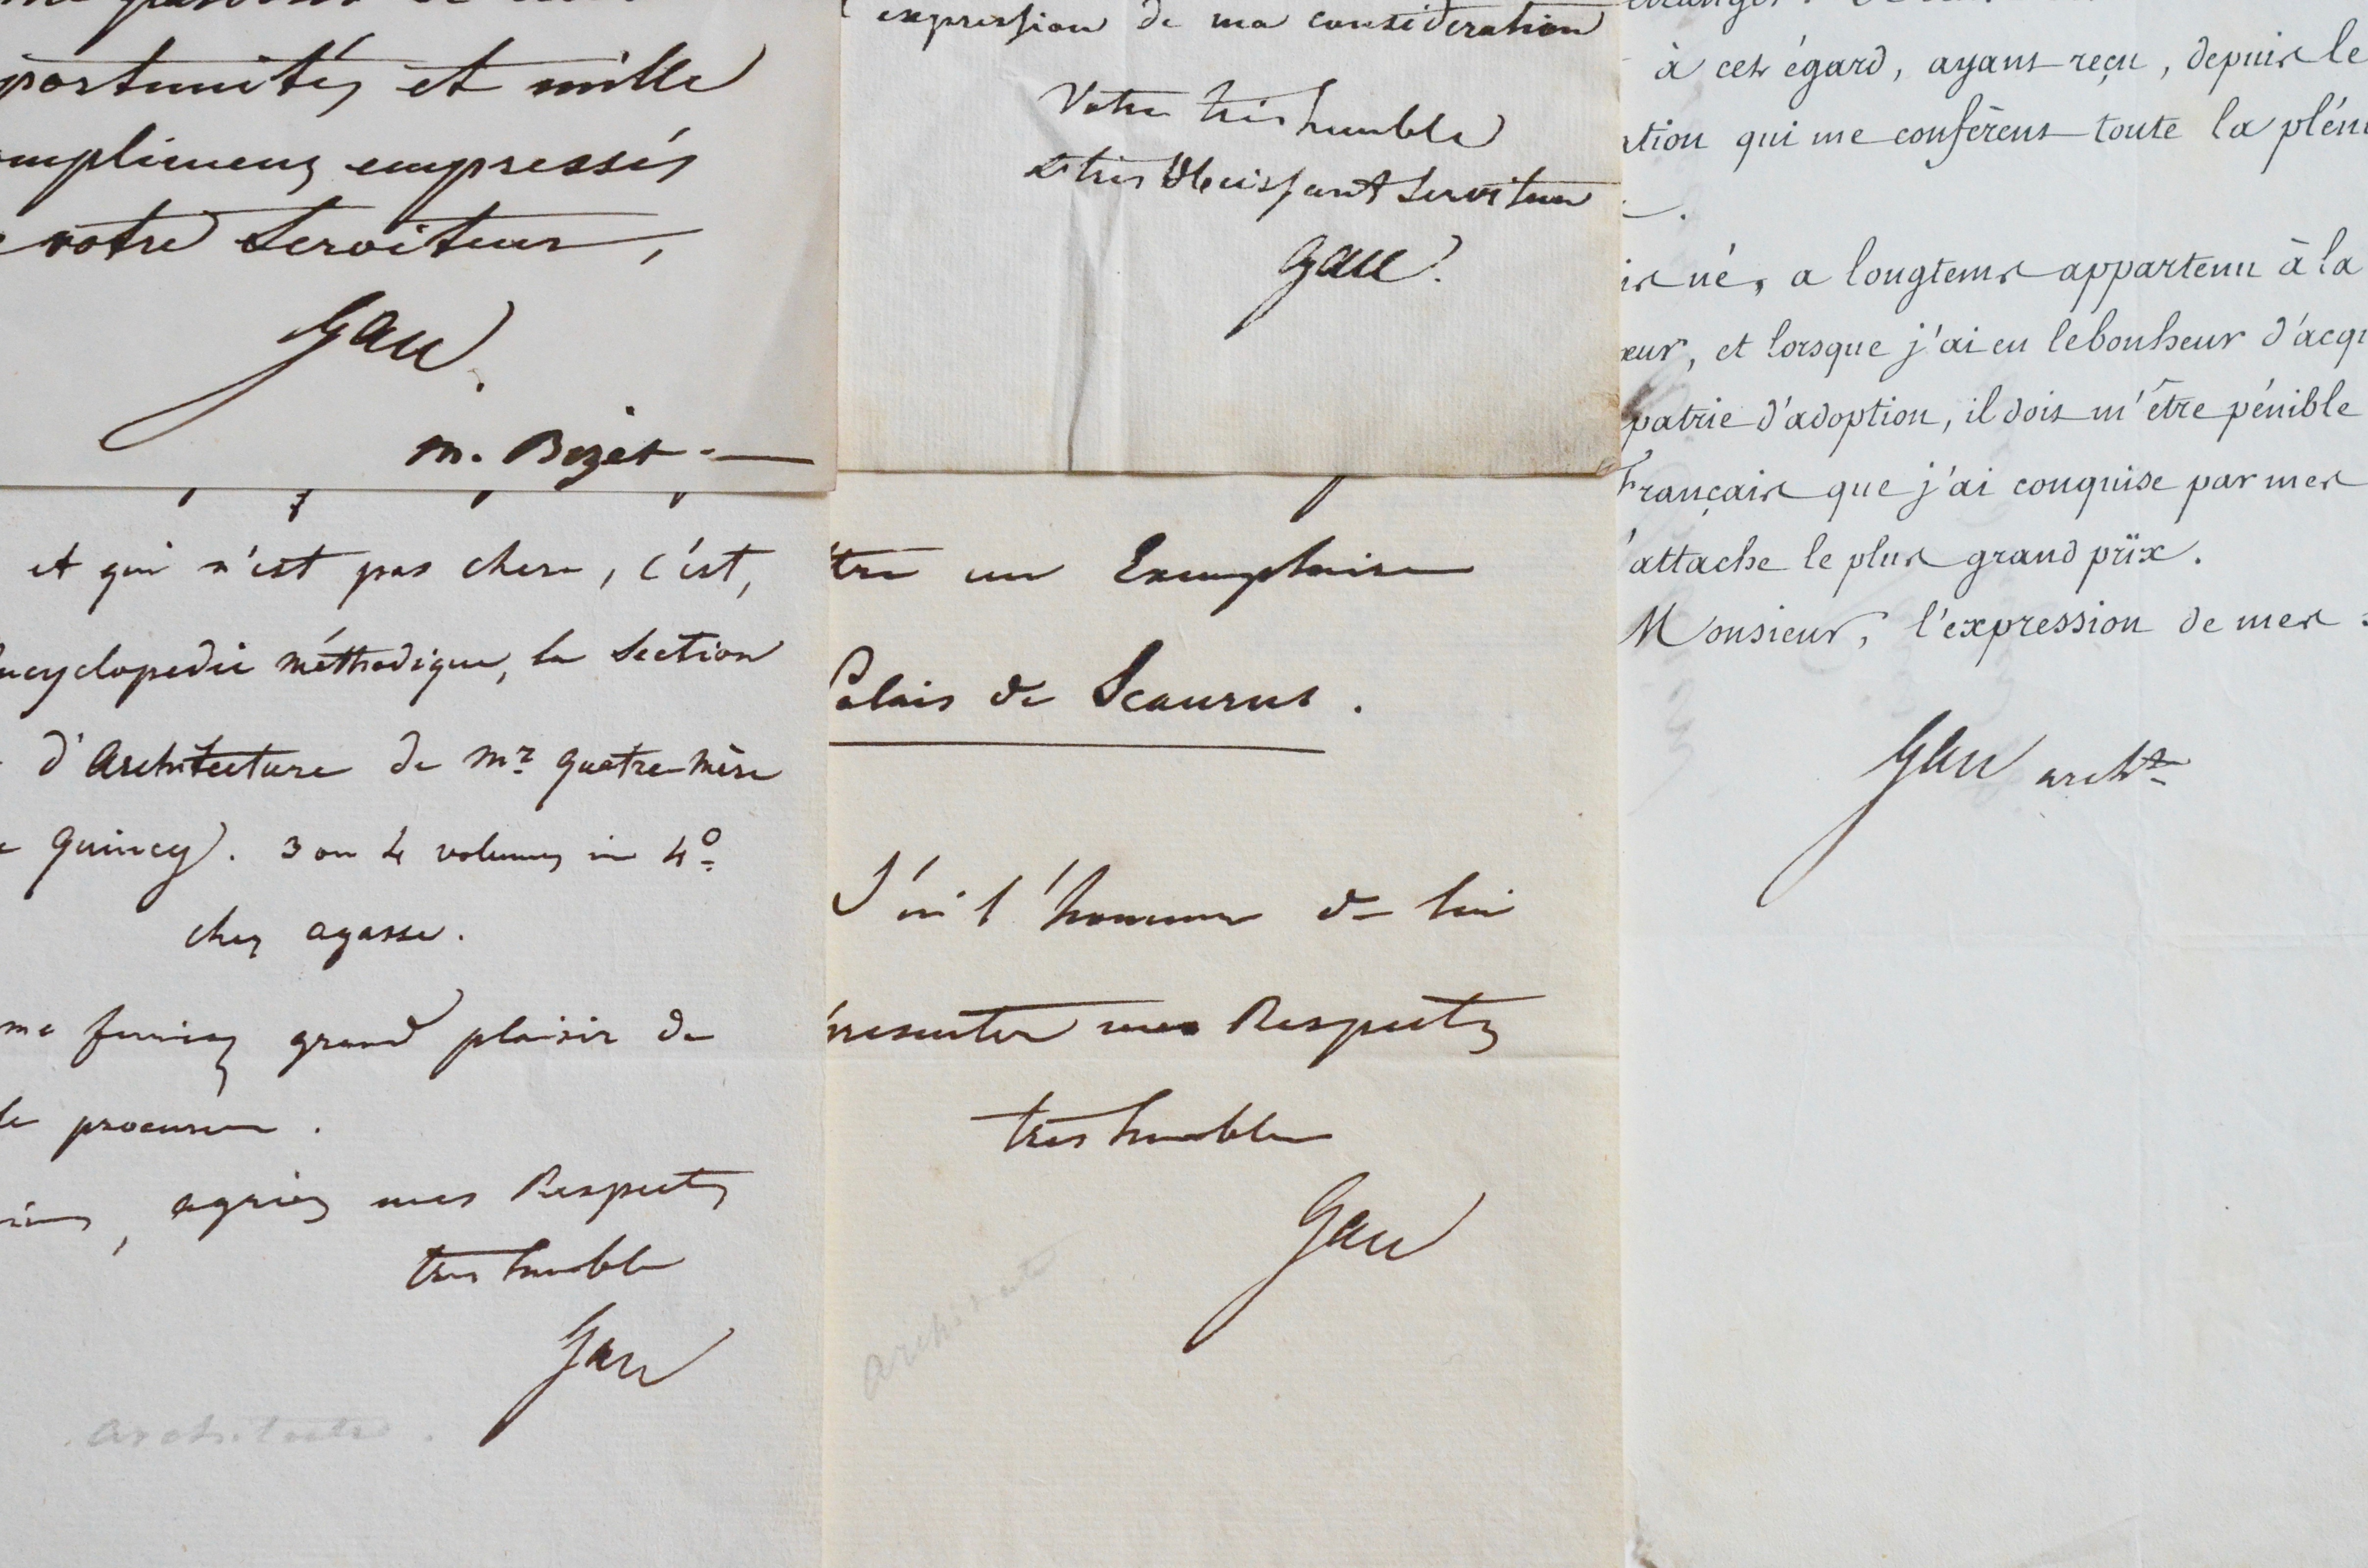 portunités et mille
mplimens empressés
votre Serviteur,
Gau.
M. Bizet.
et qui n'est pas chere, c'est,
ncyclopedie méthodique, la Section
d'Architecture de Mr. Quatre-mère
Quincy). 3 ou 4 volumes in 4º
chez agasse.
me feriez grand plaisir de
le procurer.
, agriez mes Respects
tres humble
Gau
architecte.
expression de ma consideration
Votre très humble
et très Obeissant Serviteur
Gau.
tre un Exemplaire
Palais de Scaurus.
J'ai l'honneur de lui
presenter mes Respects
tres humbles
Gau
architecte
à cet égard, ayant reçu, depuis le
ation qui me confèrent toute la pléni
is né, a longtems appartenu à la
œur, et lorsque j'ai eu le bonheur d'acqu
patrie d'adoption, il dois m'être pénible
Français que j'ai conquise par mes
attache le plus grand prix.
Monsieur, l'expression de mes
Gau archte